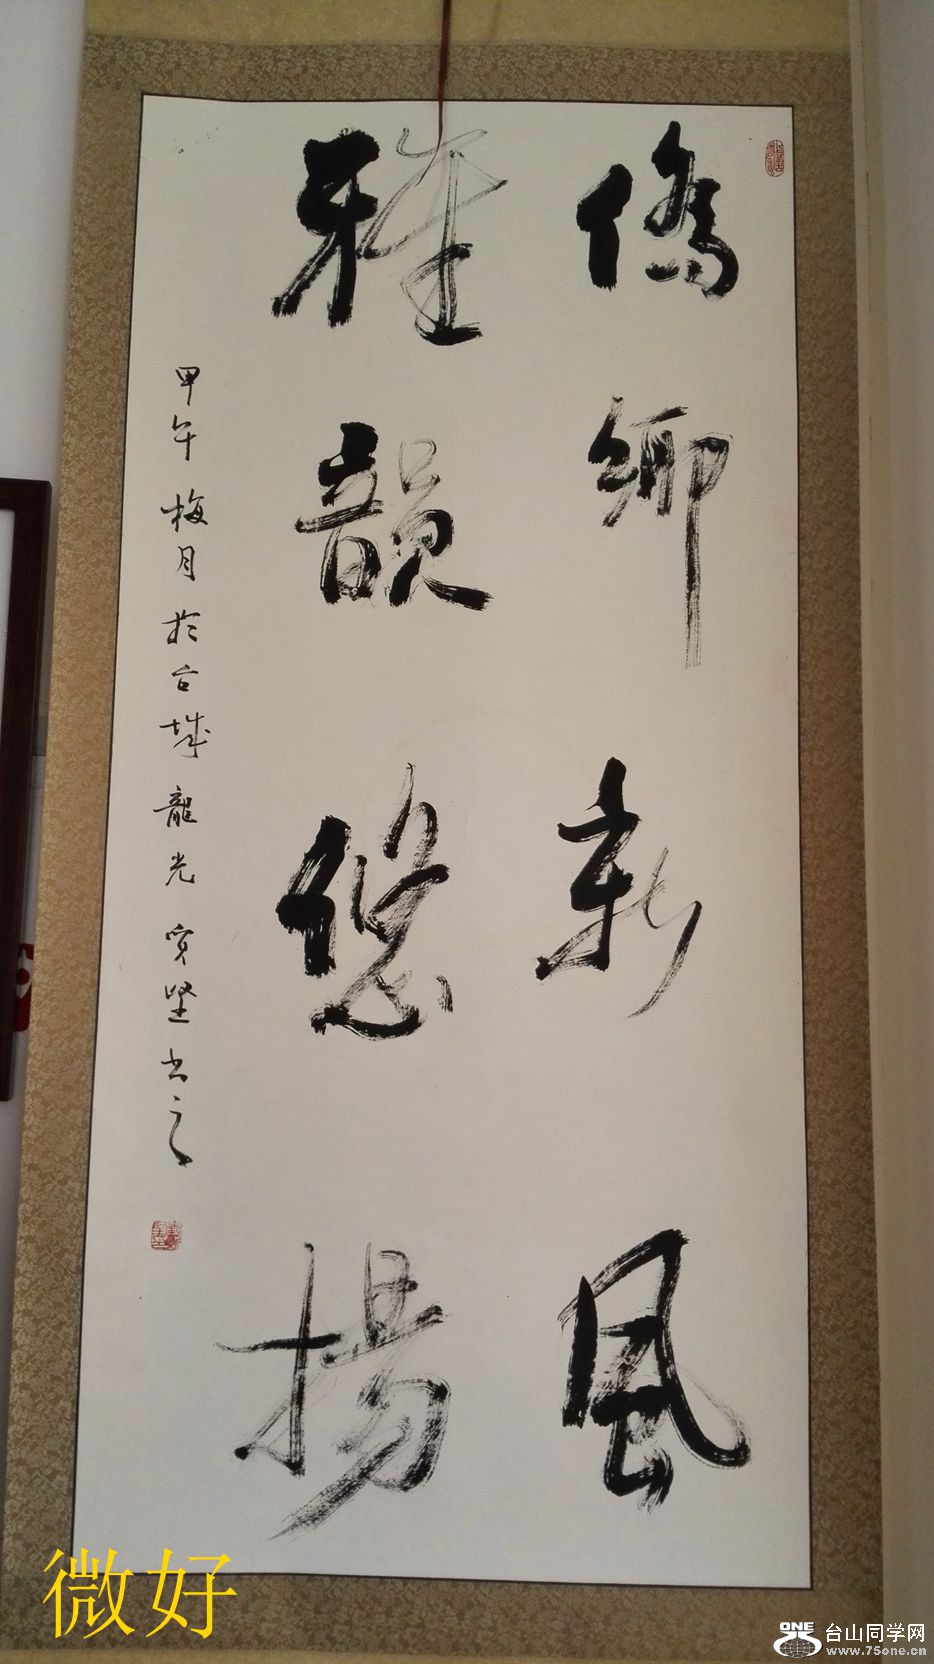 僑鄉新風
雅韻悠揚
甲午梅月於台城龍光 堅书之
微好
ONE
台山同学网
www.75one.cn